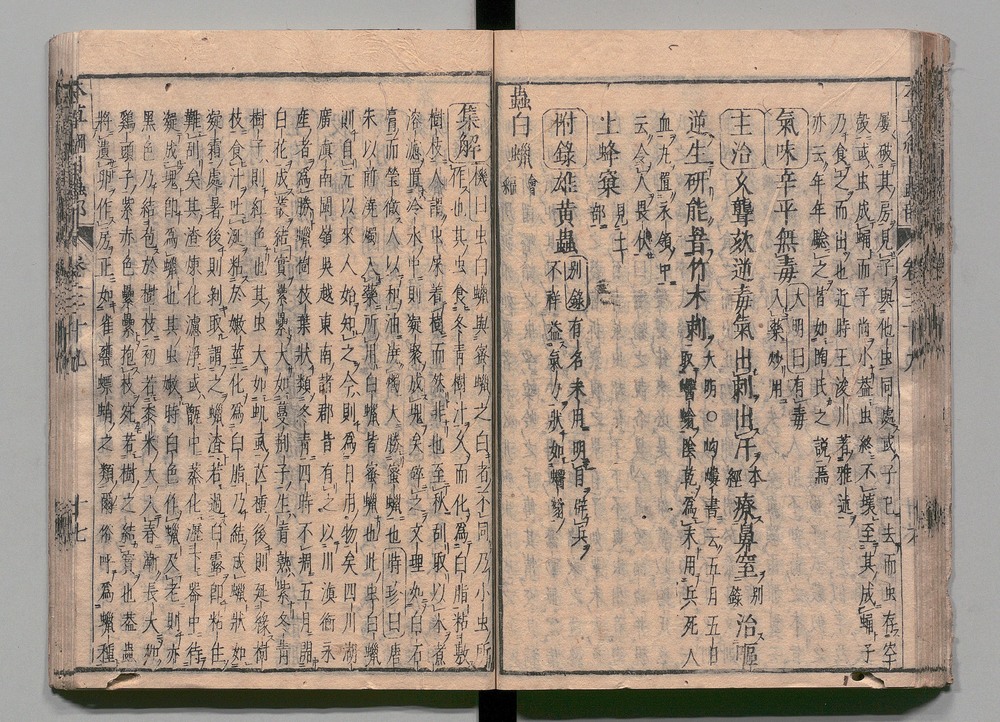 屢破其房見子與他虫同處或子已去而虫存空
殼或虫成蛹而子尚小蓋虫終不壞至其成蛹子
乃食之而出也近時王浚川著雅述
亦云年年驗之皆如陶氏之說焉
氣味辛平無毒大明曰有毒入藥炒用
主治久聾欬逆毒氣出刺出汗本經療鼻窒別錄治嘔
逆生研能罯竹木刺大明○岣嶁書云五月五日取蠮螉陰乾為末用兵死人
血丸置衣領中
云令人畏伏
土蜂窠見土部
附錄雄黃蟲別錄有名未用曰明目辟兵不祥益氣力狀如蠮螉
蟲白蠟會編
集解機曰虫白蠟與蜜蠟之白者不同乃小虫所
作也其虫食冬青樹汁久而化為白脂粘敷
樹枝人謂虫屎着樹而然非也至秋刮取以水煮
溶濾置冷水中則凝聚成塊矣碎之文理如白石
膏而瑩徹人以和油澆燭大勝蜜蠟也時珍曰唐
宋以前澆燭入藥所用白蠟皆蜜蠟也此虫白蠟
則自元以來人始知之今則為日用物矣四川湖
廣滇南閩嶺吳越東南諸郡皆有之以川滇衡永
產者為勝蠟樹枝葉狀類冬青四時不凋五月開
白花成叢結實纍纍大如蔓荊子生青熟紫冬青
樹子則紅色也其虫大如蟣虱芒種後則延緣樹
枝食汁吐涎粘於嫩莖化為白脂乃結成蠟狀如
凝霜處暑後則剝取謂之蠟渣若過白露即粘住
難刮矣其渣煉化濾淨或甑中蒸化瀝下器中待
凝成塊即為蠟也其虫嫩時白色作蠟及老則赤
黑色乃結苞於樹枝初若黍米大入春漸長大如
雞頭子紫赤色纍纍抱枝宛若樹之結實也蓋蟲
將遺卵作房正如雀甕螵蛸之類爾俗呼為蠟種